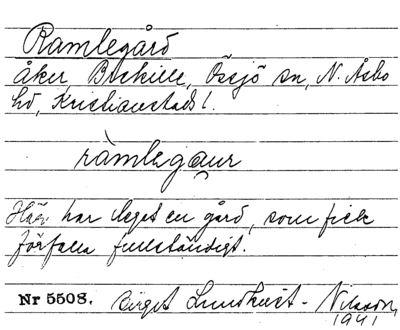 Ramlegård
åker, Backille, Össjö sn, N. Åsbo
hd, Kristianstads l.
ràmlegaur
Här har leget en gård, som fick
förfalla fullständigt.
Nr 5508. Birget Lundkvist - Nilsson,
1941